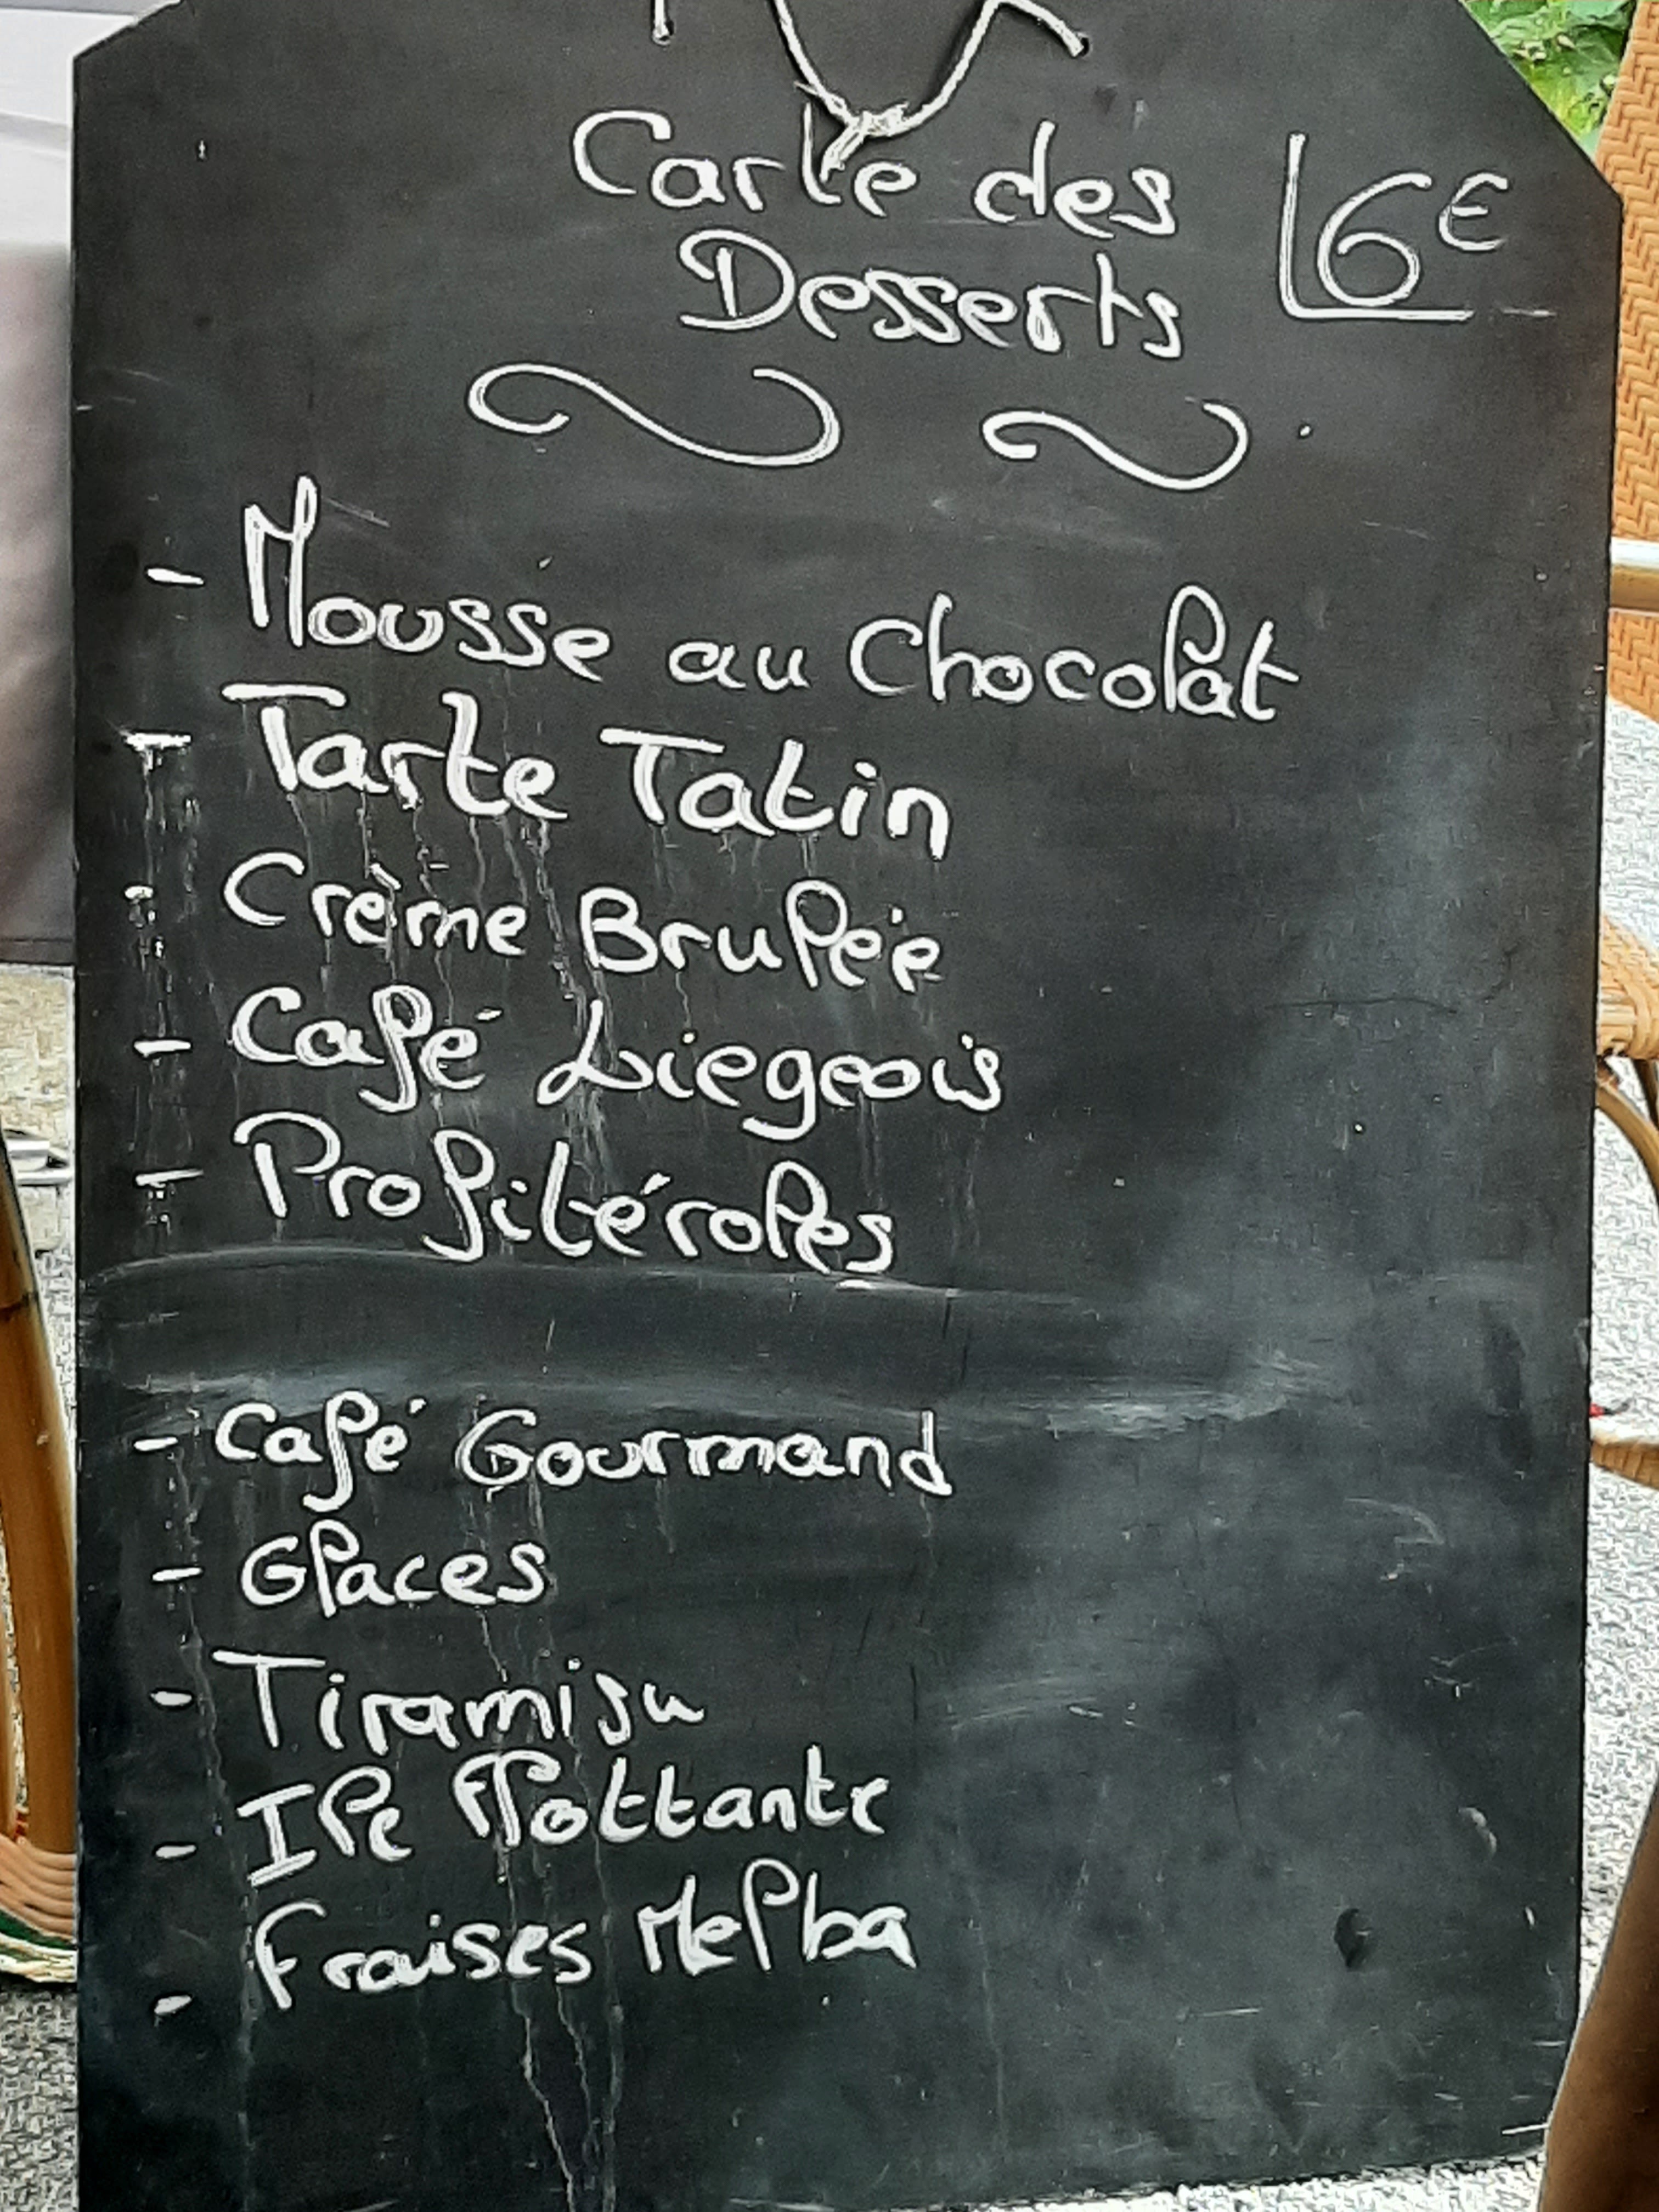 Carte des
Desserts
6€
- Mousse au Chocolat
- Tarte Tatin
- Crème Brulée
- Café Liegeois
- Profitéroles
- Café Gourmand
- Glaces
- Tiramisu
- Ile flottante
- Fraises Melba